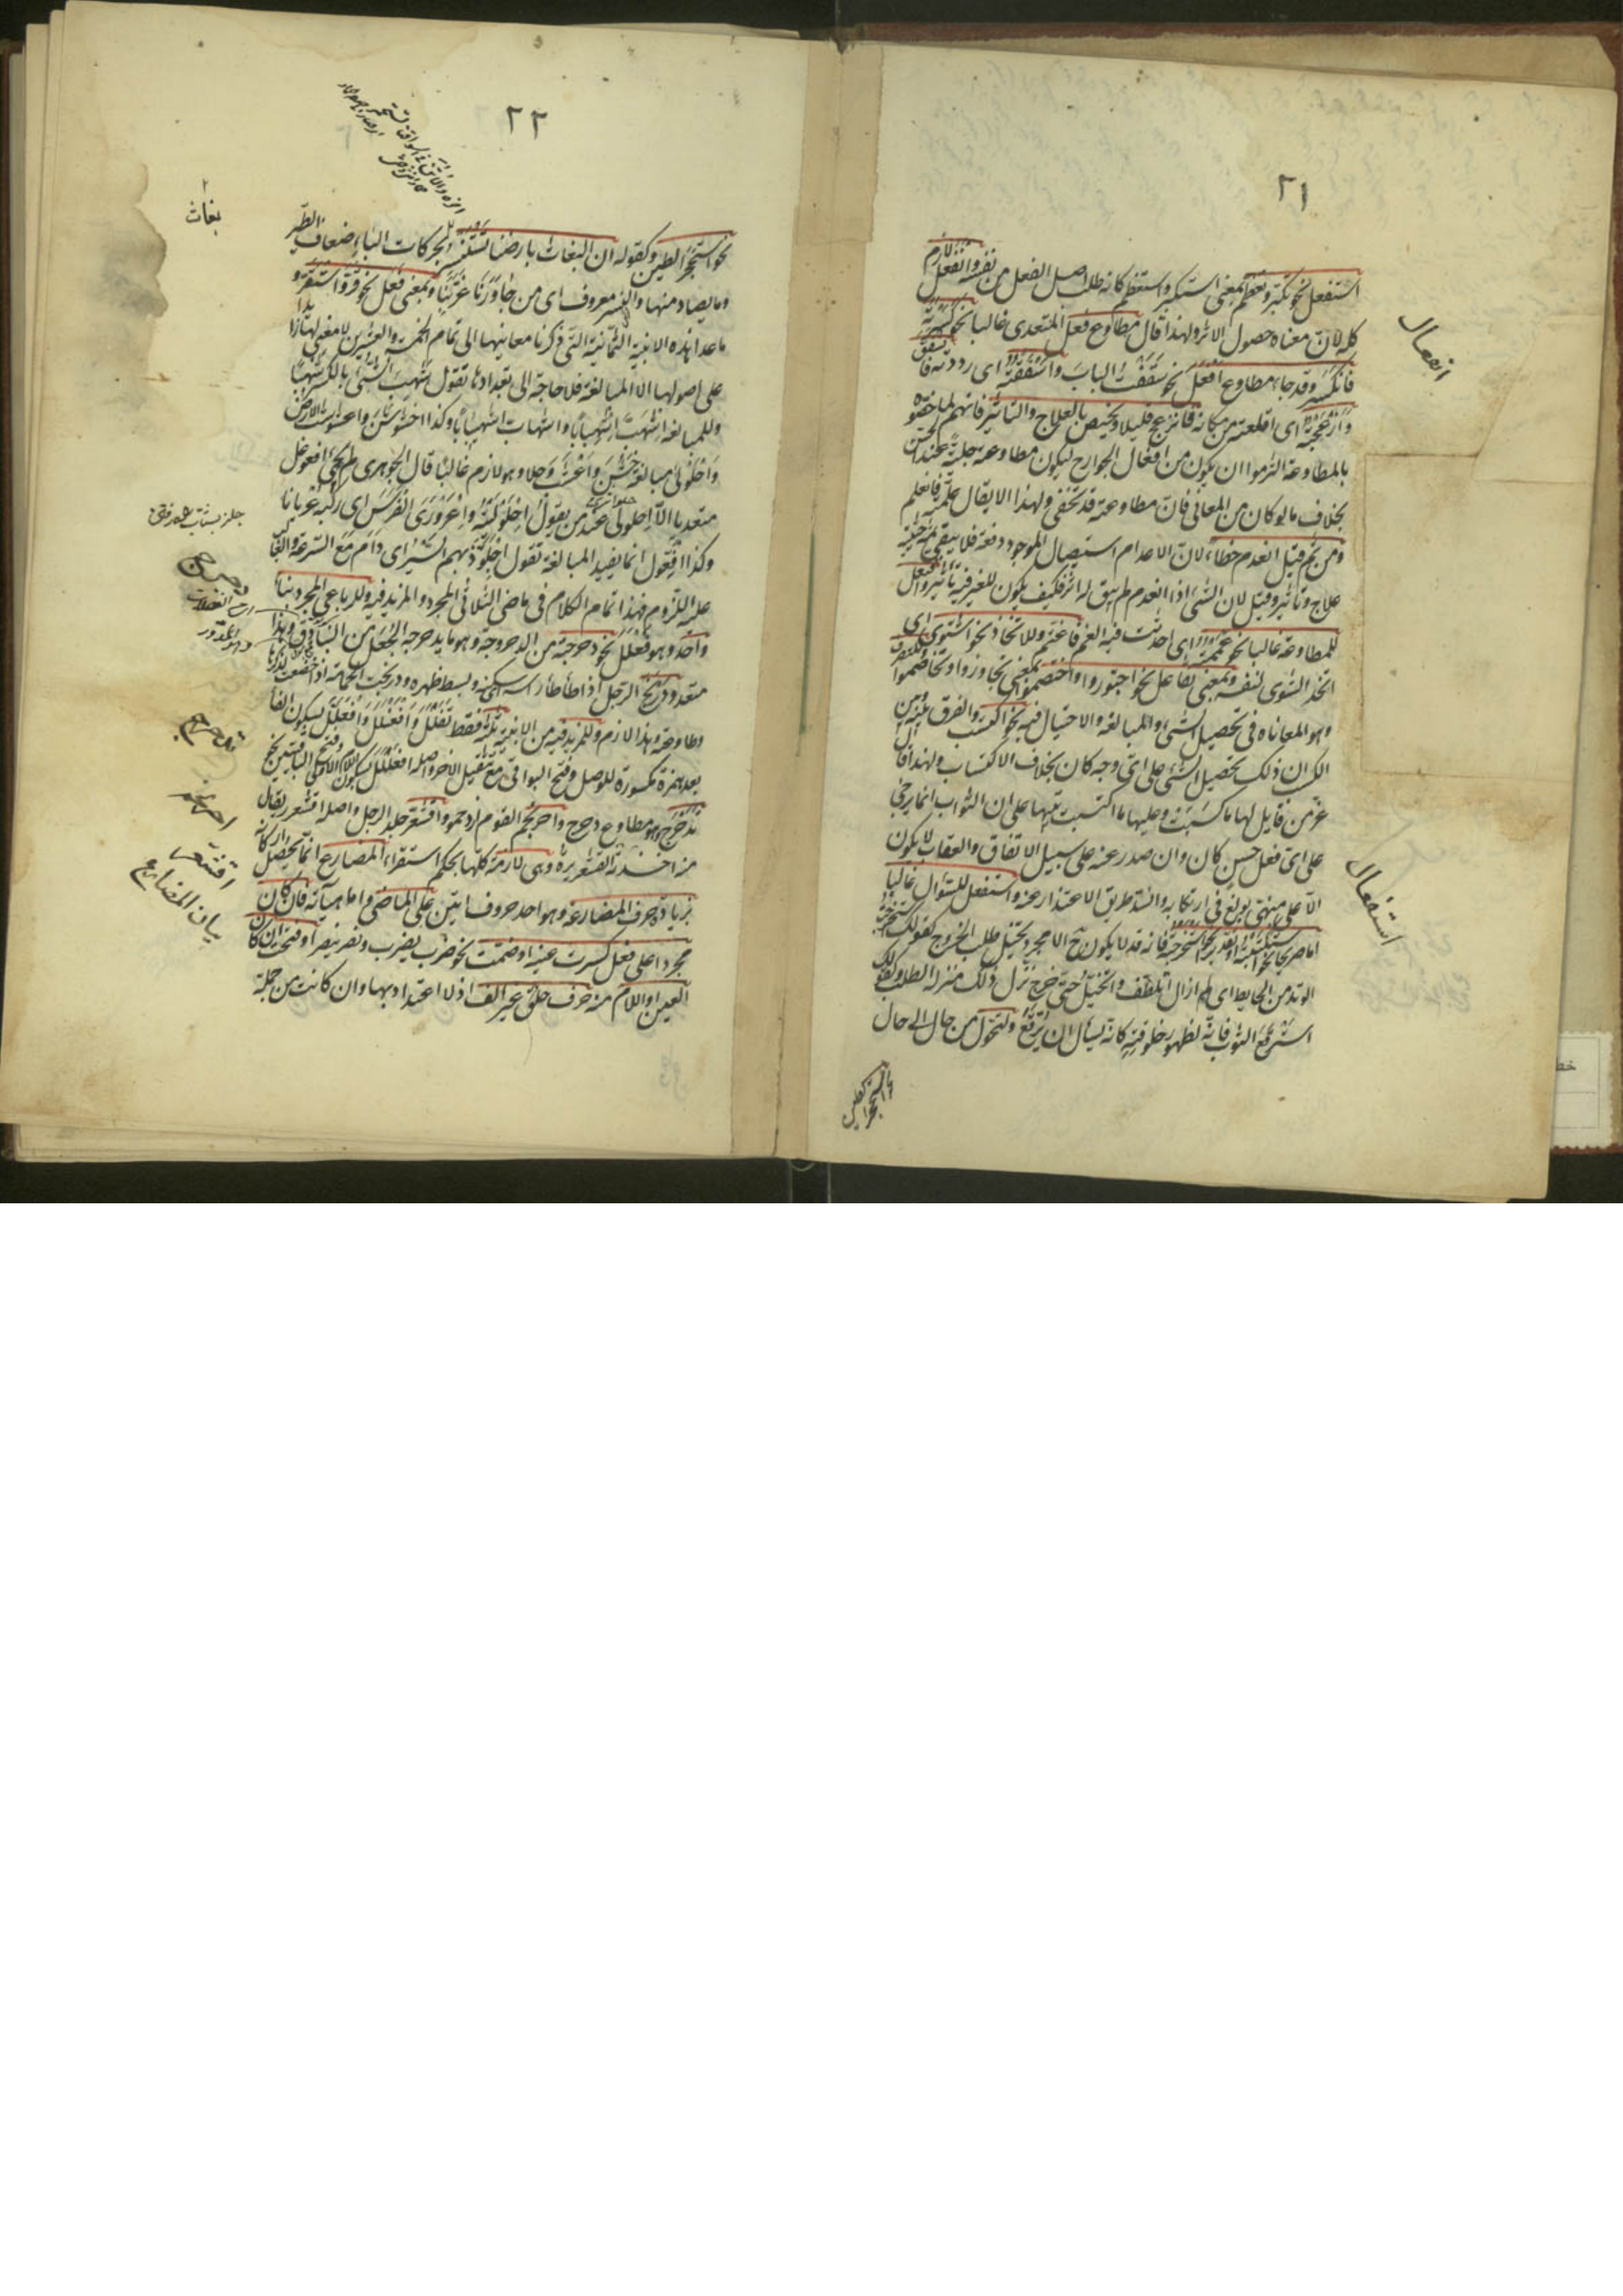 ٢١
استفعل نحو تكبّر وتعظّم بمعنى استكبر واستعظم كانه طلب اصل الفعل من نفسه وانفعل لازم
كله لان معناه حصول الاثر ولهذا قال مطاوع فعل المتعدى غالبا نحو كسرته
فانكسر وقد جاء مطاوع افعل نحو سقفت الباب واسقفته اى رددته فانسقف
وازعجته اى اقلعته من مكانه فانزعج قليلا ويختص بالعلاج والتاثير فانهم لما خصّوه
بالمطاوعة التزموا ان يكون من افعال الجوارح ليكون مطاوعه جلية عند الحسّ
بخلاف ما لو كان من المعانى فان مطاوعته قد تخفى ولهذا لا يقال علّمته فانعلم
ومن ثم قيل انعدم خطاء لان الاعدام استيصال الموجود دفعة فلا يبقى ثمه حيثية
علاج وتاثير وقيل لان الشىء اذا انعدم لم يبق له اثر فكيف يكون للغير فيه تاثير وافتعل
للمطاوعة غالبا نحو غممته اى احدثت فيه الغم فاغتم وللاتخاذ نحو اشتوى اى
اتخذ الشوى لنفسه وبمعنى تفاعل نحو اجتوروا واختصموا بمعنى تجاوروا وتخاصموا وللتصرف
وهو المعاناة فى تحصيل الشىء والمبالغة والاحتيال فيه نحو اكتسب والفرق بينه وبين
الكسب ان ذلك تحصيل الشىء على اى وجه كان بخلاف الاكتساب ولهذا قال
عزّ من قايل لها ما كسبت وعليها ما اكتسبت تنبيها على ان الثواب انما يرجى
على اى فعل حسن كان وان صدر عنه على سبيل الاتفاق والعقاب لا يكون
الا على منهى بولغ فى ارتكابه وانسد طريق الاعتذار عنه واستفعل للسؤال غالبا
اما صريحا نحو استكتبته او تقديرا نحو استخرجته فانه قد لا يكون ثمّ الا مجرد تخيّل طلب الخروج كقولك استخرجت
الوتد من الحايط اى لم ازل اتلطف واتخيّل حتى خرج نزّل ذلك منزلة الطلب وكقولك
استرقع الثوب فانه لظهور خلوقيته كانه يسأل ان يرقع وللتحول من حال الى حال
نحو استحجر الطين
انفعال
استفعال
٢٢
نحو استحجر الطين وكقوله ان البغاث بارضنا تستنسر بحركات الباء ضعاف الطير
وما يصاد منها والنسر معروف اى من جاورنا عزّ بنا وبمعنى فعل نحو قرّ واستقرّ و
ما عدا هذه الابنية الثمانية التى ذكرنا معانيها الى تمام الخمسة والعشرين لا معنى لها زايدا
على اصولها الا المبالغة فلا حاجة الى تعدادها تقول شهب الشىء بالكسر شهبا
وللمبالغة اشهبّ اشهبابا واشهابّ اشهيبابا وكذا اخشوشن واعشوشبت الارض
واحلولى مبالغة خشن واعشب وحلا وهو لازم غالبا قال الجوهرى لم يجئ افعوعل
متعديا الا احلولى عند من يقول احلوليته واعروريت الفرس اى ركبه عريانا
وكذا افعوّل انما يفيد المبالغة تقول اجلوّذ بهم السير اى دام مع السرعة والغالب
عليه اللزوم فهذا تمام الكلام فى ماضى الثلاثى المجرد والمزيد فيه وللرباعى المجرد بناء
واحد وهو فعلل نحو دحرجته من الدحروجة وهو ما يدحرجه الجعل من البنادق وهذا
متعد ودربخ الرجل اذا طأطأ راسه وبسط ظهره ودربخت الحمامة اذا خضعت لذكرها
وطاوعته وهذا لازم وللمزيد فيه من الابنية ثلثة فقط تفعلل وافعنلل وافعللّ بسكون الفاء
بعد همزة مكسورة للوصل وفتح البواقى مع تثقيل الاخر واصله افعللل بسكون اللام الاولى وفتح الباقيتين نحو
تدحرج وهو مطاوع دحرج واحرنجم القوم ازدحموا واقشعر جلد الرجل واصله اقشعرر يقال
منه اخذته القشعريرة وهى لازمة كلها بحكم استقراء المضارع انما يحصل
بزيادة حرف المضارعة وهو احد حروف اتين على الماضى واما هيآته فان كان
مجردا على فعل كسرت عينه او ضمت نحو ضرب يضرب ونصر ينصر او فتحت ان كان
العين او اللام منه حرف حلق غير الف اذ لا اعتداد بها وان كانت من جملة
بغاث
دحرج
تدحرج
احرنجم
اقشعر
بيان المضارع